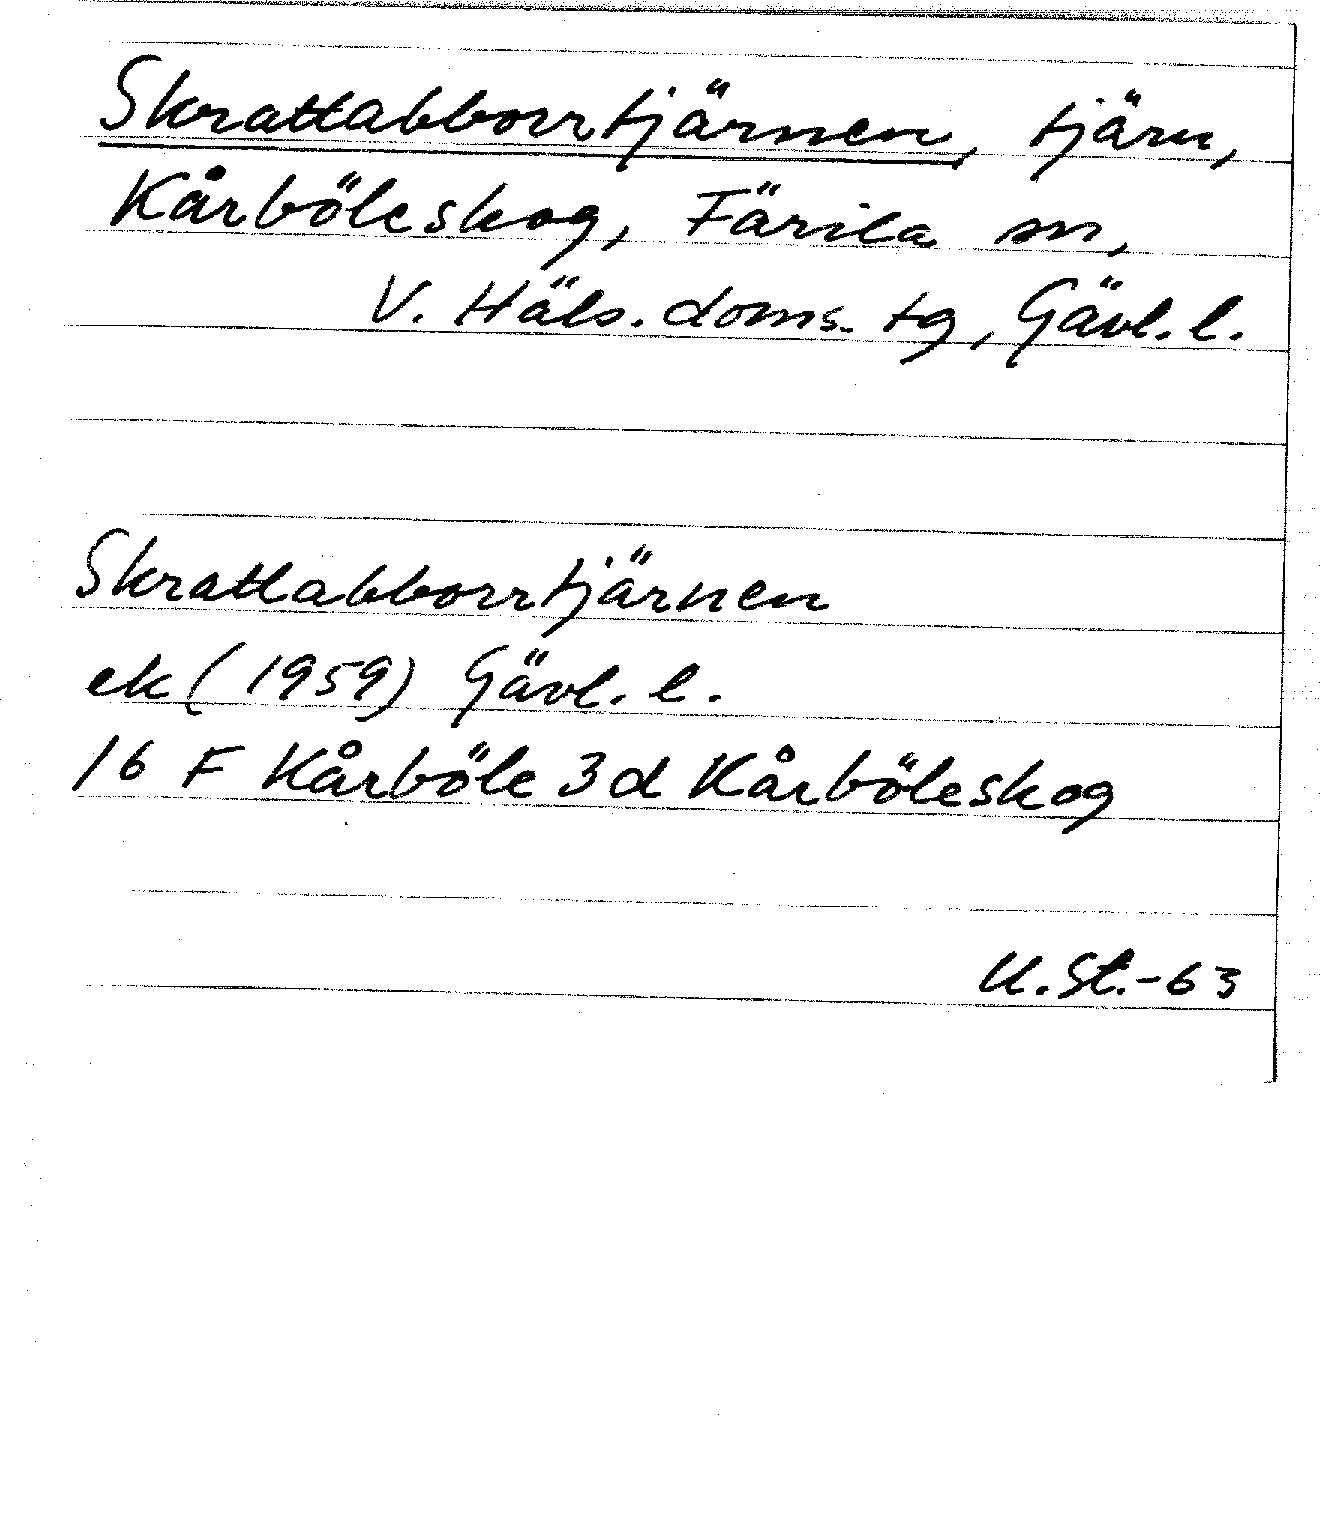 Skrattabborrtjärnen, tjärn,
Kårböleskog, Färila sn,
V. Häls. doms. tg, Gävl. l.
Skrattabborrtjärnen
ek (1959) Gävl. l.
16 F Kårböle 3d Kårböleskog
U. St.-63